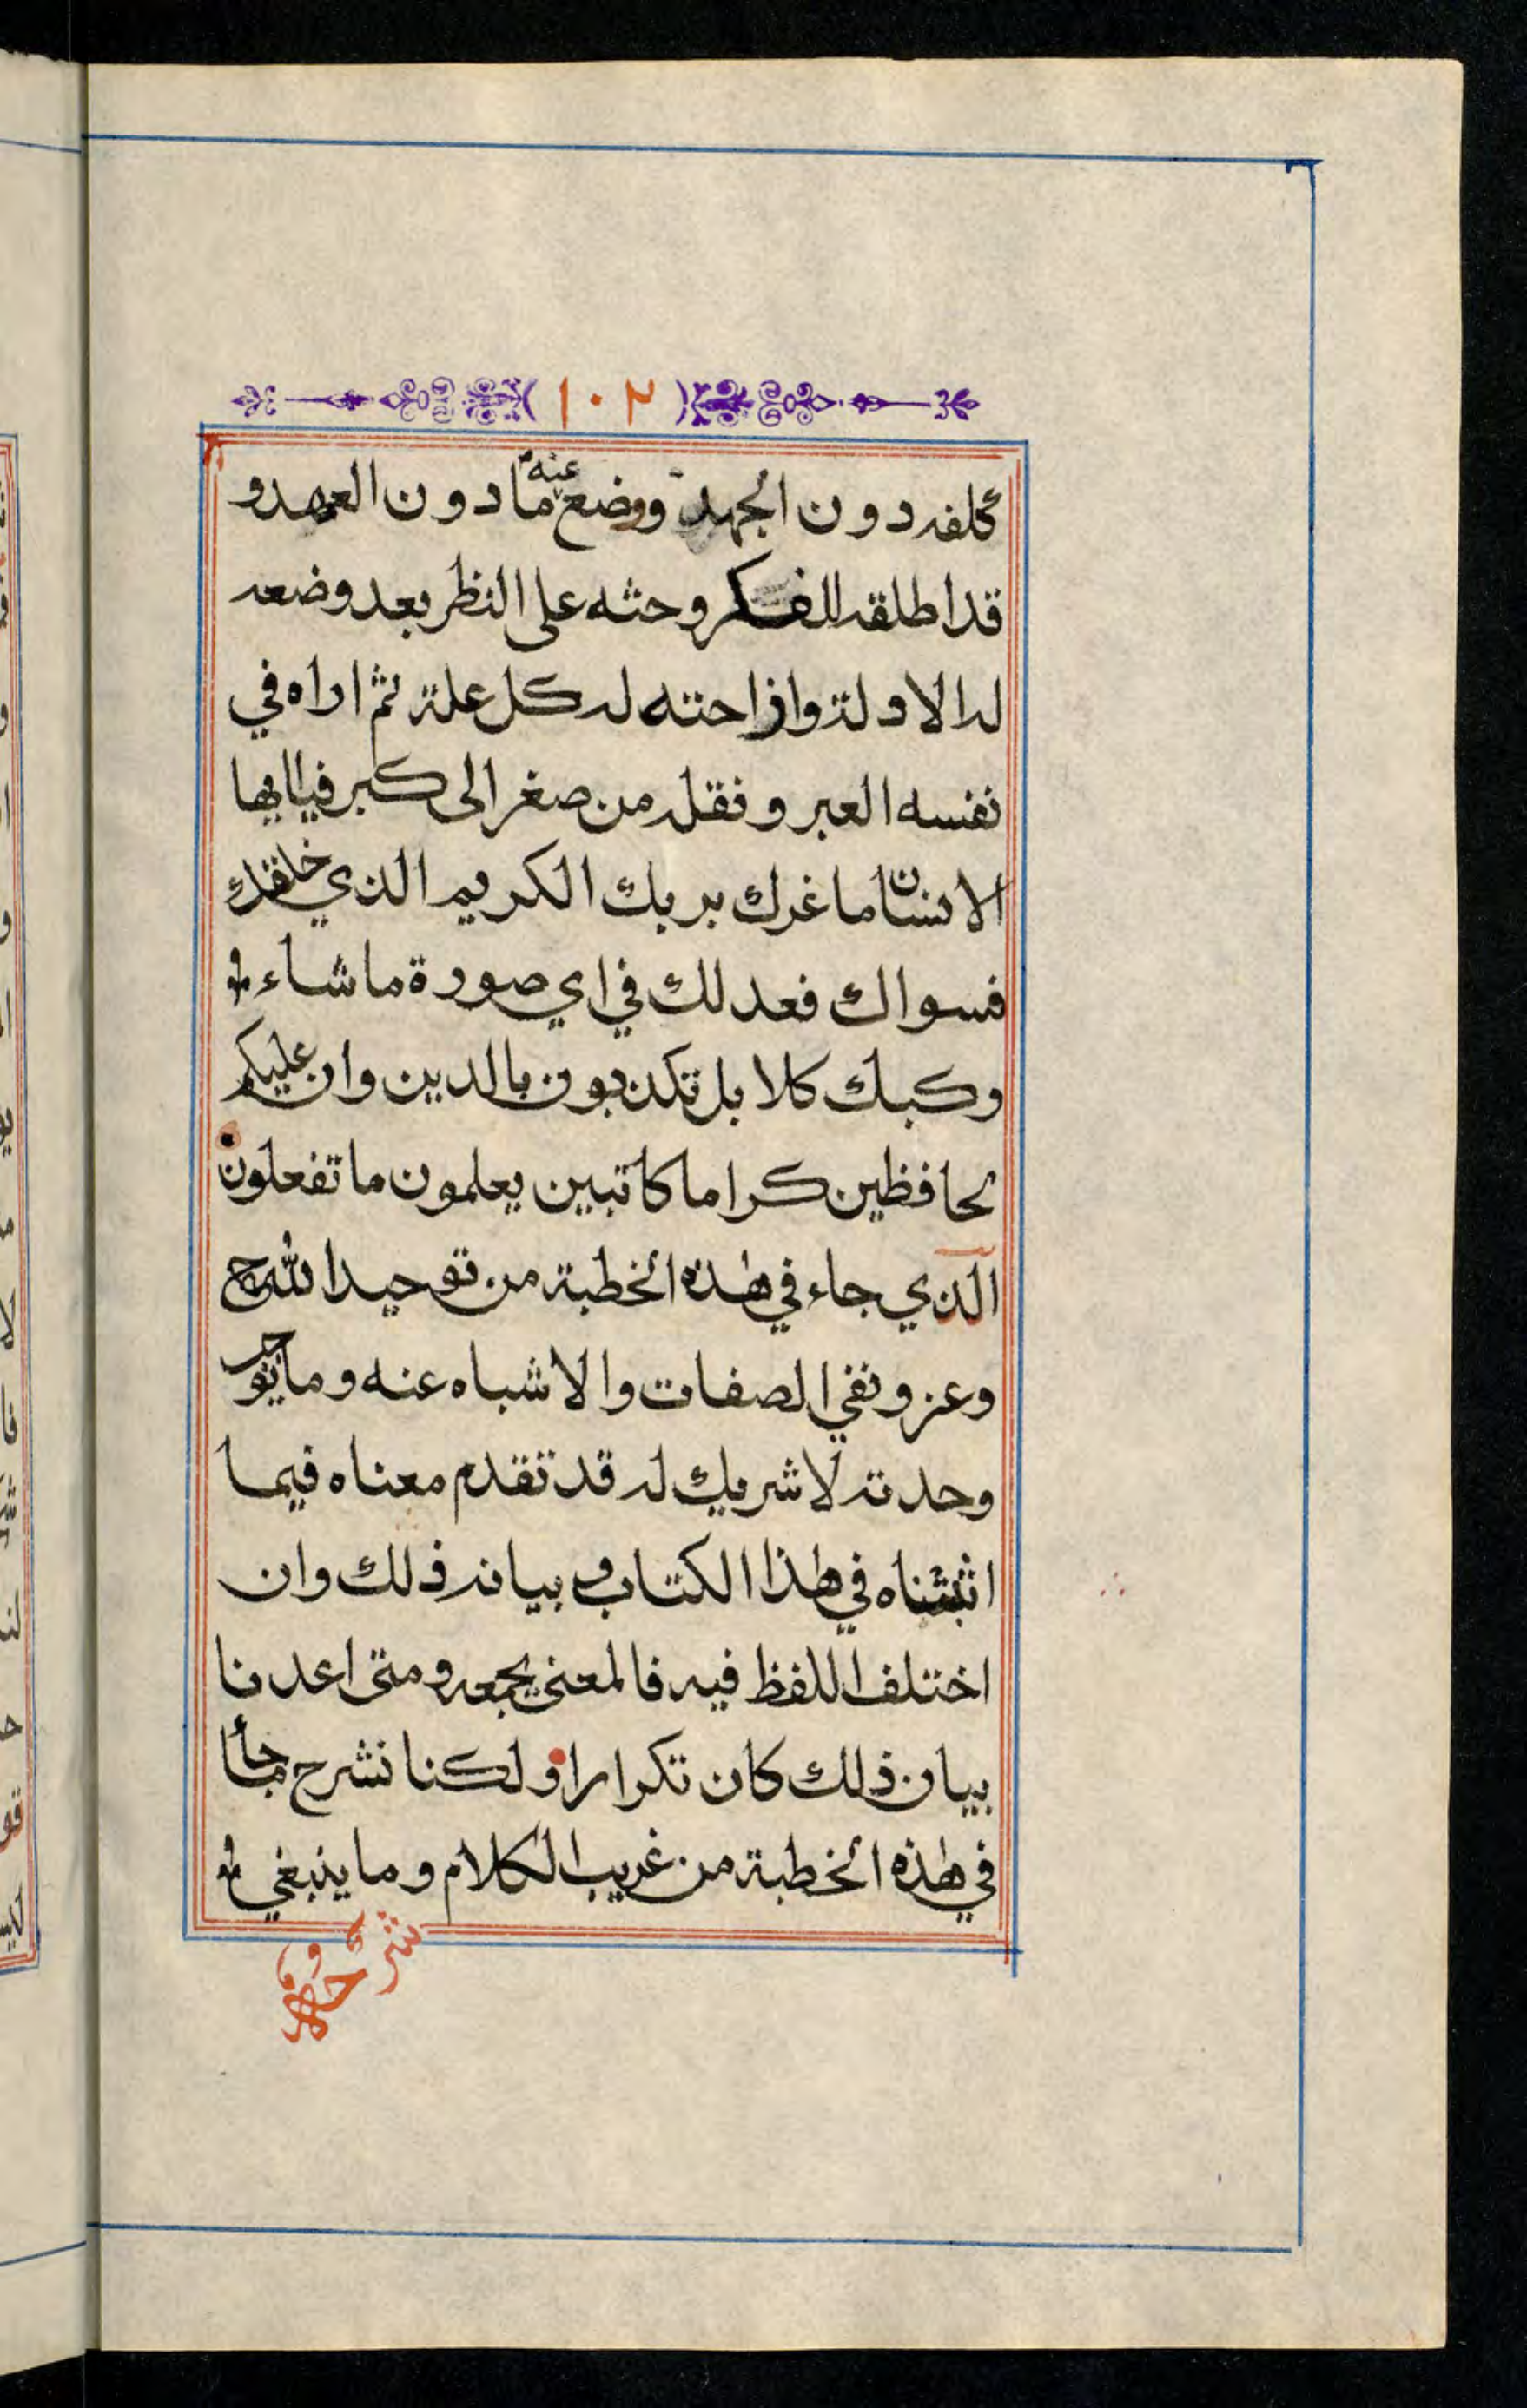 ١٠٢
كلفه دون الجهد ووضع عنه ما دون العهد و
قد اطلقه للفكر وحثه على النظر بعد وضعه
له الادلة وازاحته له كل علة ثم اراه في
نفسه العبر ونقله من صغر الى كبر فياايها
الانسان ما غرك بربك الكريم الذي خلقك
فسواك فعدلك في اي صورة ما شاء
وكبك كلا بل تكذبون بالدين وان عليكم
لحافظين كراما كاتبين يعلمون ما تفعلون
الذي جاء في هذه الخطبة من توحيد الله جل
وعز ونفي الصفات والاشباه عنه وما يو
وحدته لا شريك له قد تقدم معناه فيما
اثبتناه في هذا الكتاب وبيانه ذلك وان
اختلف اللفظ فيه فالمعنى يجمعه ومتى اعدنا
بيان ذلك كان تكرارا ولكنا نشرح ما جاء
في هذه الخطبة من غريب الكلام وما ينبغي
شرحه